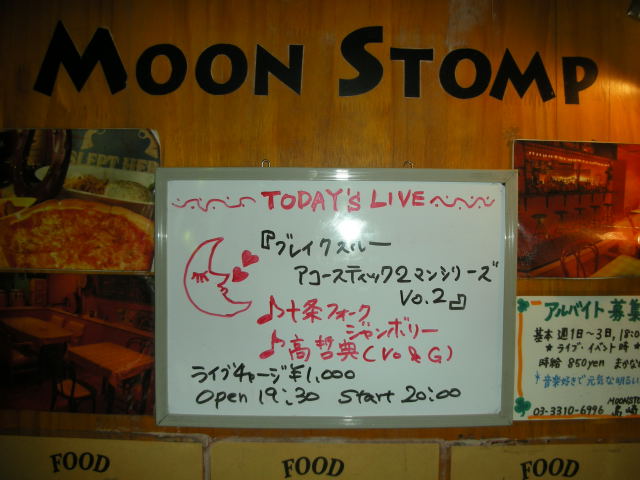 MOON STOMP
SLEPT HER
TODAY'S LIVE
『ブレイクスルー
アコースティック2マンシリーズ
Vo.2』
♪十条フォーク
ジャンボリー
♪高哲典(Vo&G)
ライブチャージ¥1,000
Open 19:30 Start 20:00
アルバイト募集
基本週1日〜3日,18:0
★ライブ・イベント時★
時給 850yen まかな
音楽好きで元気な明るい
03-3310-6996
MOONSTO
FOOD
FOOD
FOOD